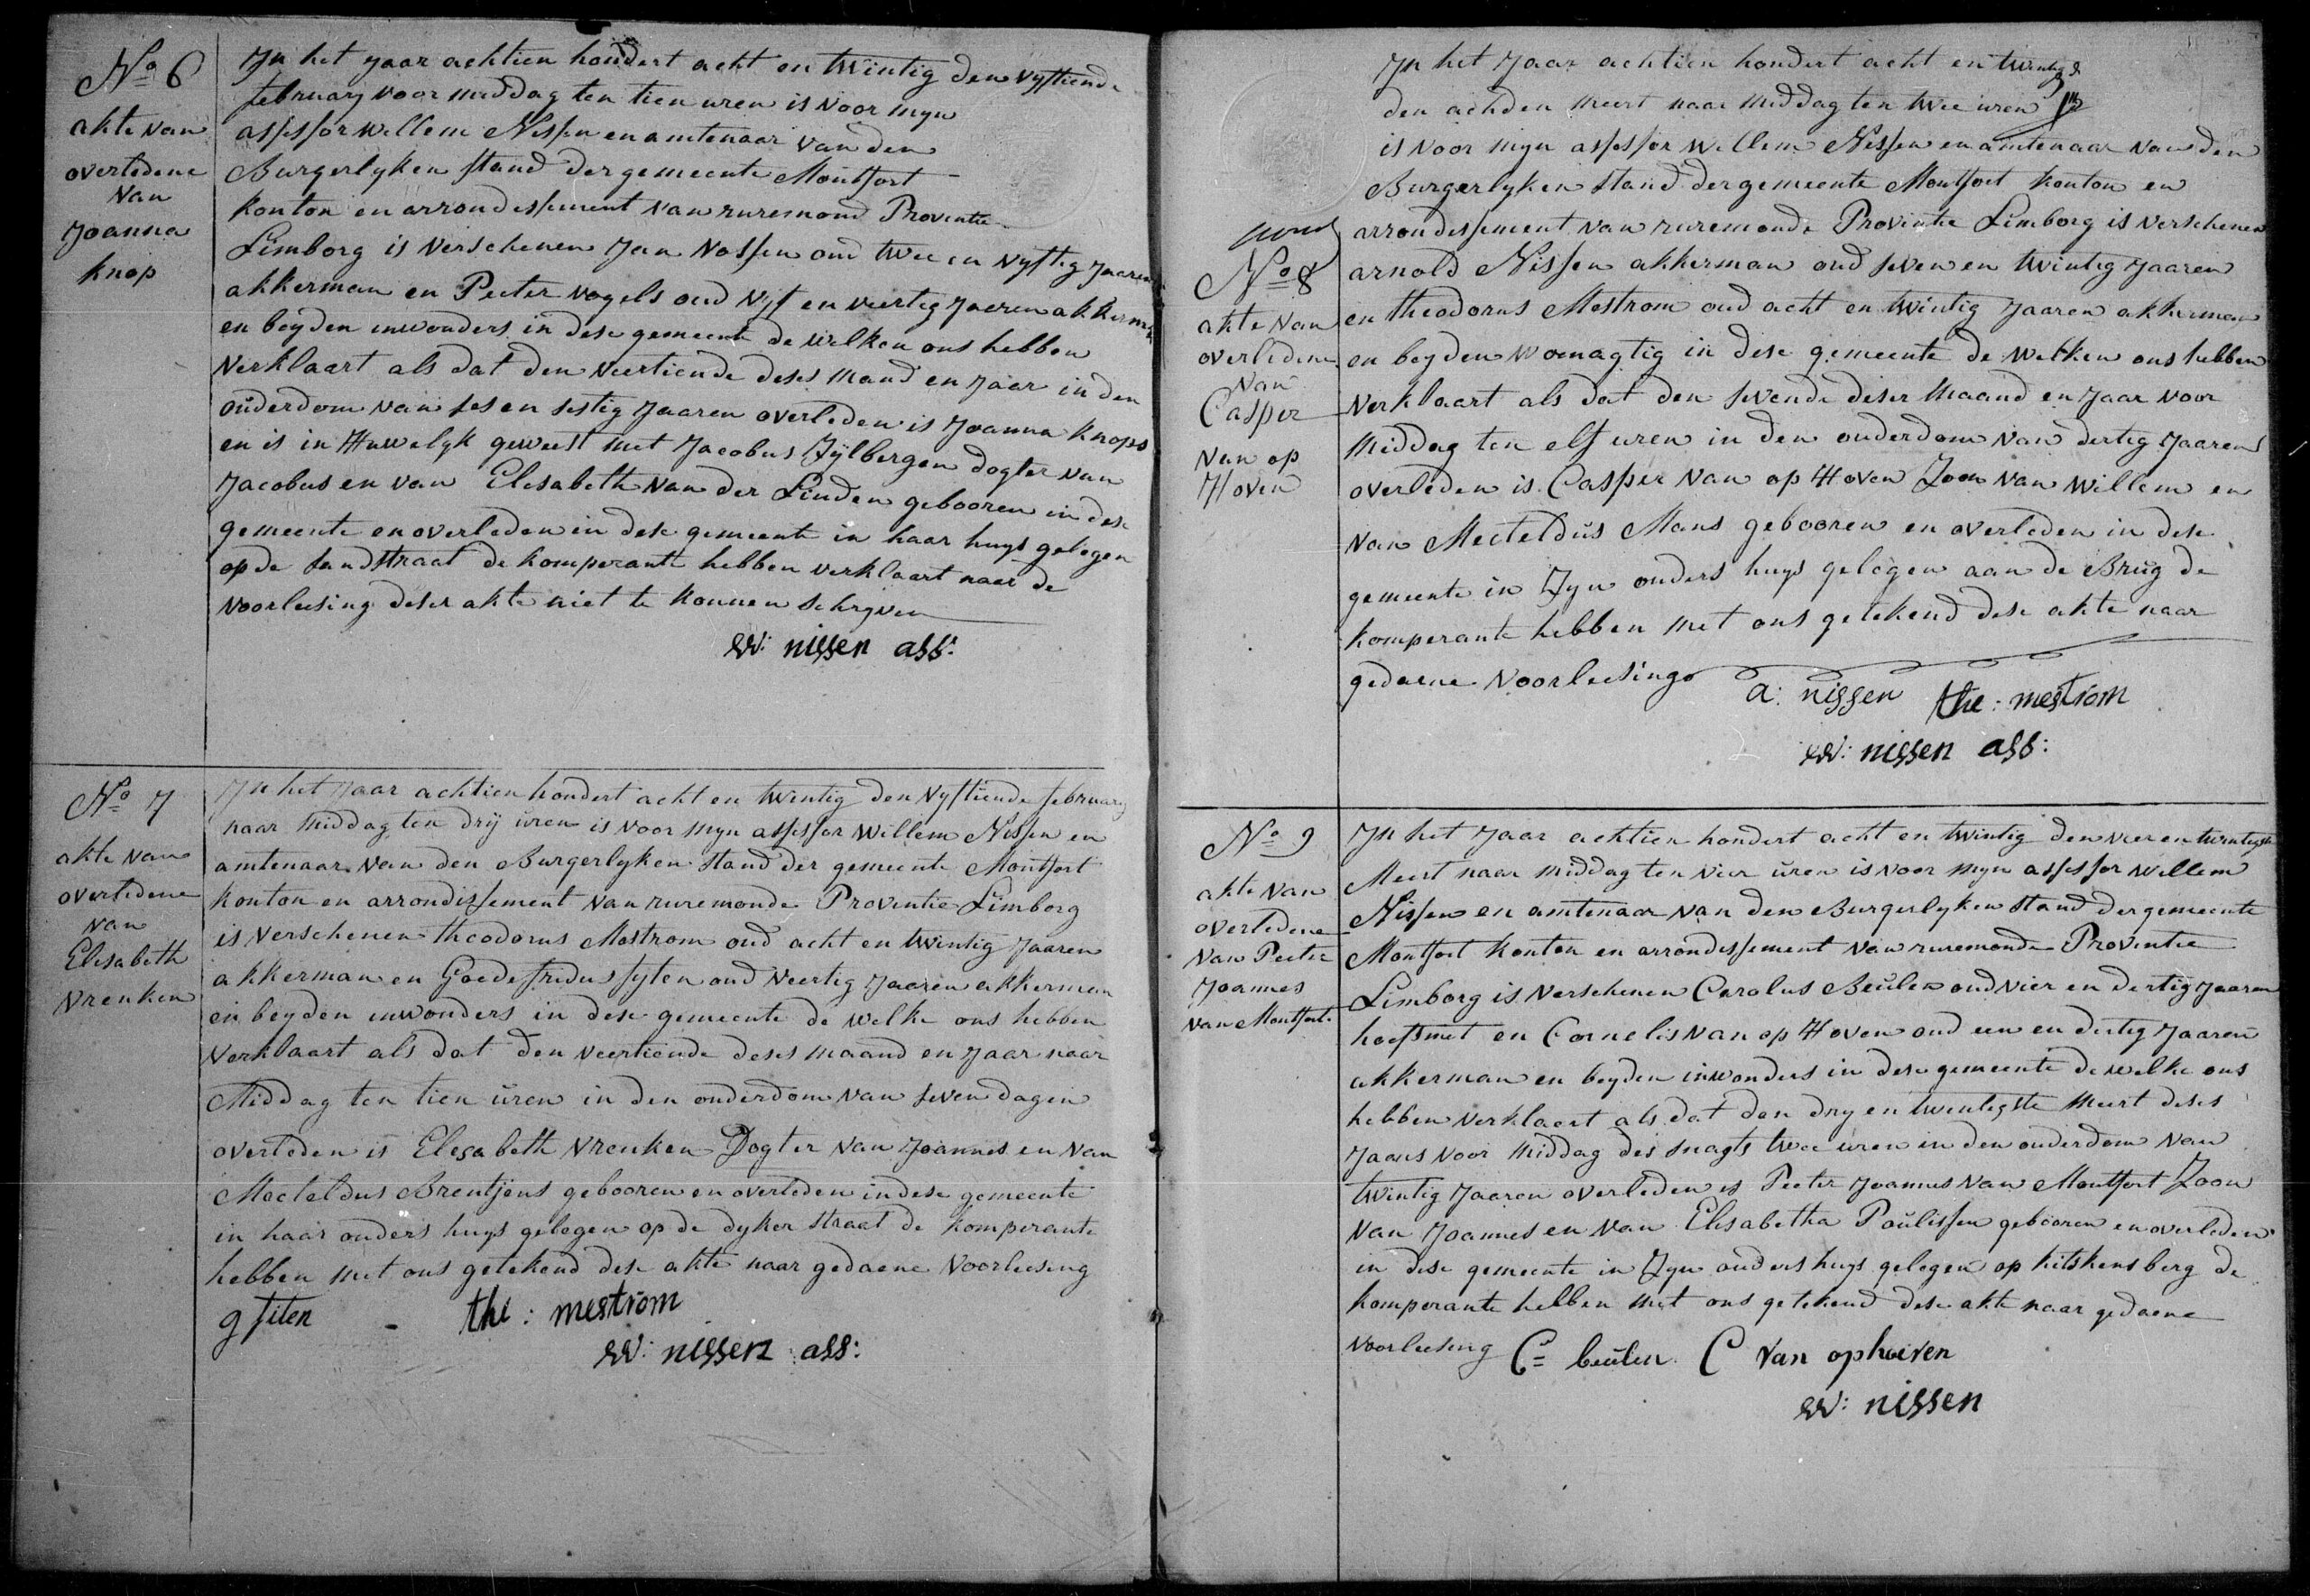 No 6
akte van
overledene
van
Joanna
knop
In het jaar achtien hondert acht en twintig den vyftiende
february voor middag ten tien uren is voor myn
assessor willem Nissen en amtenaar van den
Burgerlyken stand der gemeente Montfort
konton en arrondissement van ruremond Proventie
Limborg is verschenen Jan Nossen oud twee en vyftig jaaren
akkerman en Peeter vogels oud vyf en veertig jaeren akkerman
en beyden inwonders in dese gemeente de welken ons hebben
verklaart als dat den veertiende deses mand en jaar in den
ouderdom van ses en sestig jaaren overleden is Joanna knops
en is in Huwelyk geweest met Jacobus Zylbergen dogter van
Jacobus en van Elesabeth van der Linden gebooren in dese
gemeente en overleden in dese gemeente in haar huys gelegen
op de sandstraat de komperante hebben verklaart naar de
voorleesing deser akte niet te konnen schryven
W: nissen ass:
No 7
akte van
overledene
van
Elisabeth
vrenken
In het Jaar achtien hondert acht en twintig den vyftiende february
naar middag ten drij uren is voor myn assessor willem Nissen en
amtenaar van den Burgerlyken stand der gemeente Montfort
konton en arrondissement van ruremonde Proventie Limborg
is verschenen theodorus Mestrom oud acht en twintig jaaren
akkerman en Goedefridus syten oud veertig jaaren akkerman
en beyden inwonders in dese gemeente de welke ons hebben
verklaart als dat den veertiende deses maand en jaar naar
Middag ten tien uren in den onderdom van seven dagen
overleden is Elesabeth vrenken Dogter van Joannes en van
Mecteldus Brentjens gebooren en overleden in dese gemeente
in haar ouders huys gelegen op de dyker straat de komperante
hebben met ons getekend dese akte naar gedaene voorleesing
g siten - the: mestrom
W: nissen ass:
No 8
akte van
overledene
van
Casper
van op
Hoven
In het Jaar achtien hondert acht en twintig
den achden meert naar middag ten twee uren
is voor myn assessor willem Nissen en amtenaar van den
Burgerlyken stand der gemeente Montfort konton en
arrondissement van ruremonde Provintie Limborg is verschenen
arnold Nissen akkerman oud seven en twintig jaaren
en theodorus Mestrom oud acht en twintig jaaren akkerman
en beyden woenagtig in dese gemeente de welken ons hebben
verklaart als dat den sevende deser maand en jaar voor
middag ten elf uren in den ouderdom van dertig jaaren
overleden is Casper van op Hoven Zoon van willem en
van Mecteldus Mans gebooren en overleden in dese
gemeente in Zyn ouders huys gelegen aan de Brug de
komperante hebben met ons getekend dese akte naar
gedaene voorleesing
a: nissen the: mestrom
W: nissen ass:
No 9
akte van
overledene
van Peeter
Joannes
van Montfort
In het Jaar achtien hondert acht en twintig den vier en twintigste
Meert naar middag ten vier uren is voor myn assessor willem
Nissen en amtenaar van den Burgerlyken stand der gemeente
Montfort konton en arrondissement van ruremonde Proventie
Limborg is verschenen Carolus Beulen oud vier en dertig jaaren
hoefsmit en Cornelis van op Hoven oud een en dertig jaaren
akkerman en beyden inwonders in dese gemeente de welke ons
hebben verklaert als dat den dry en twentigste meert deses
jaars voor middag des snagts twee uren in den ouderdom van
twintig jaaren overleden is Peeter Joannes van Montfort Zoon
van Joannes en van Elisabetha Paulissen gebooren en overleden
in dese gemeente in Zyn ouders huys gelegen op hitskensberg de
komperante hebben met ons getekend dese akte naar gedaene
voorleesing C= beulen C van ophoiven
W: nissen